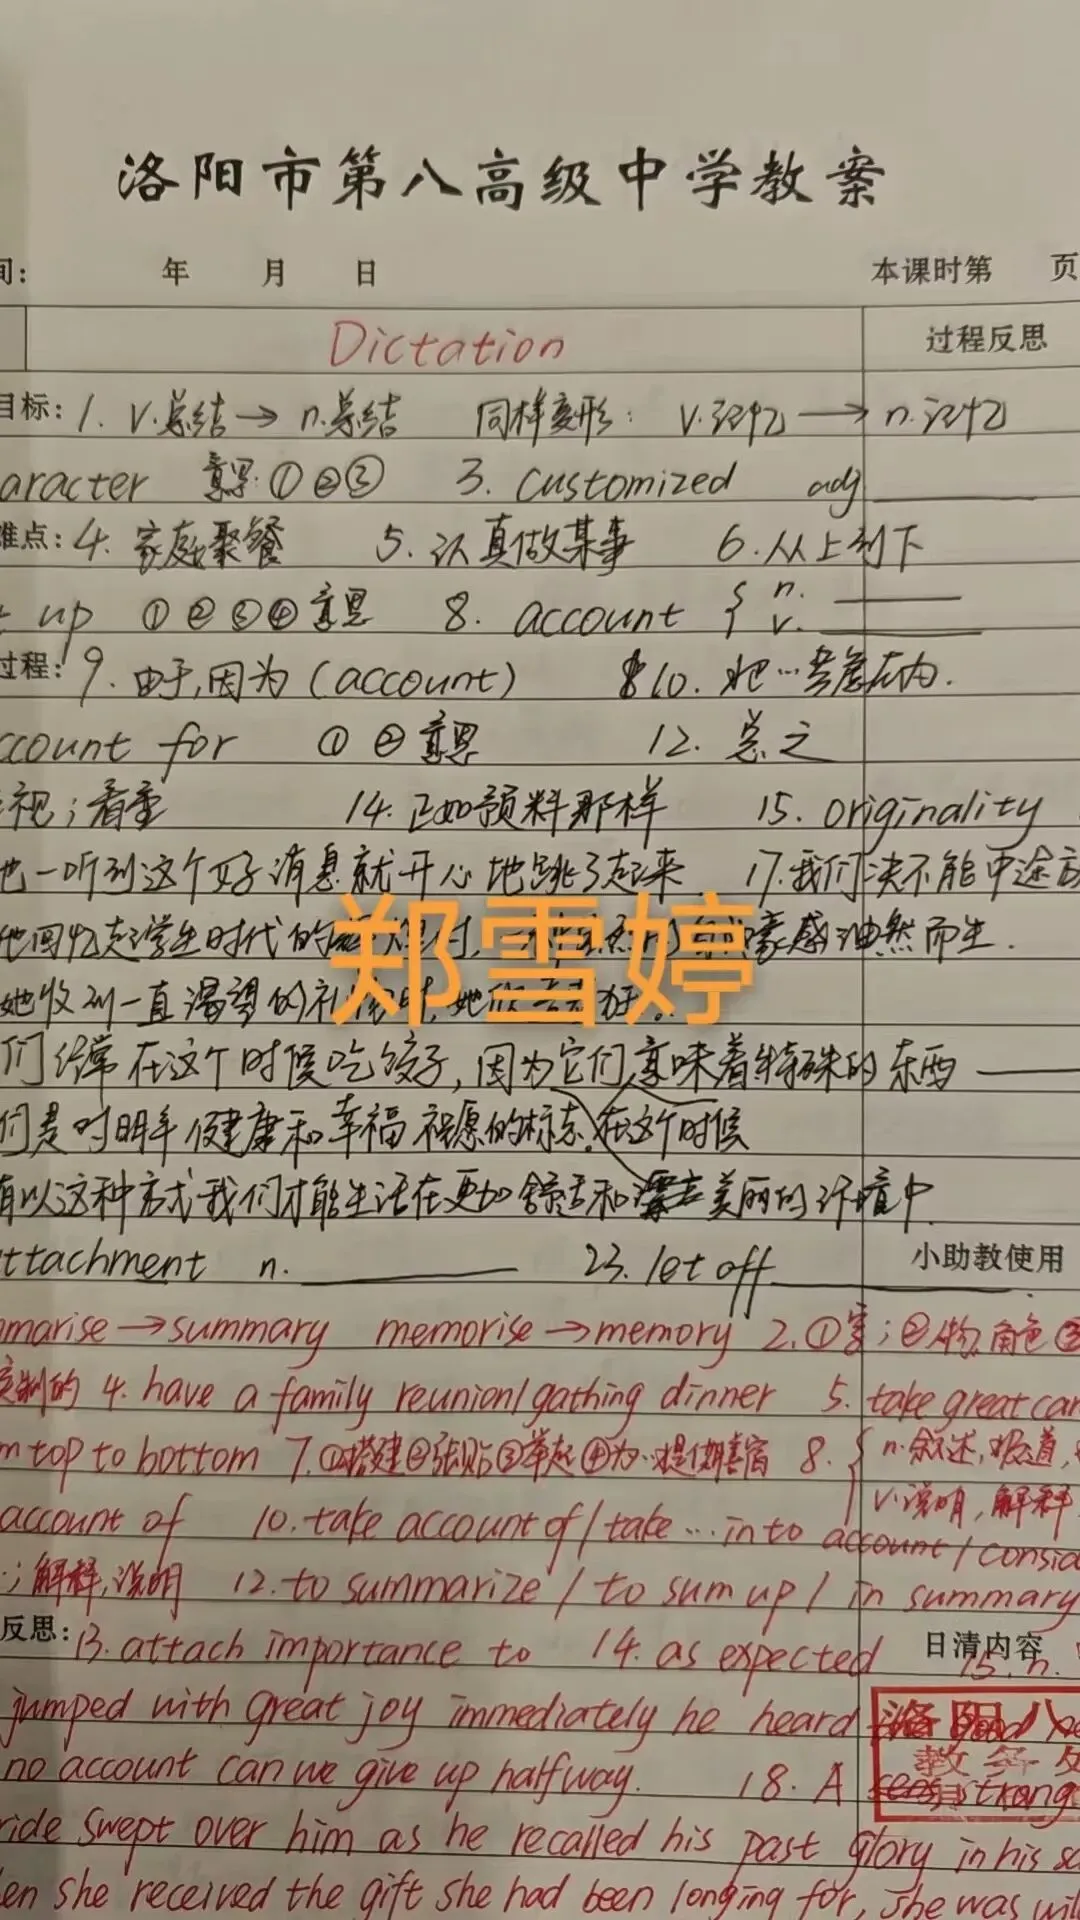 洛阳市第八高级中学教案
间: 年 月 日 本课时第 页
Dictation 过程反思
目标: 1. v.总结→ n.总结 同样变形: v.记忆 → n.记忆
aracter 意思 ①②③ 3. customized adj
难点: 4. 家庭聚餐 5. 认真做某事 6. 从上到下
up ①②③④意思 8. account { n. v.
过程: 9. 由于,因为 (account) 10. 把…考虑在内.
ccount for ①②意思 12. 总之
视;看重 14. 正如预料那样 15. originality
他一听到这个好消息就开心地跳了起来. 17.我们决不能中途放
他回忆起学生时代的 豪感油然而生.
她收到一直渴望的礼物时,她欣喜若狂。
郑雪婷
们经常在这个时候吃饺子,因为它们意味着特殊的东西
们是对明年健康和幸福祝愿的标志.在这个时候
有以这种方式我们才能生活在更加舒适和美丽的环境中.
ttachment n. 23. let off 小助教使用
mmarise→summary memorise→memory 2.①字;②人物,角色③
定制的 4. have a family reunion/gathing dinner 5. take great car
m top to bottom 7.①搭建②张贴③举起④为…提供膳宿 8. { n.叙述,报道,
v.说明,解释
account of 10. take account of / take … into account / consid
;解释,说明 12. to summarize / to sum up / in summary
反思: 13. attach importance to 14. as expected 日清内容 15. n.
jumped with great joy immediately he heard
洛阳八
教务处
no account can we give up halfway. 18. A strong
ride swept over him as he recalled his past glory in his sc
en she received the gift she had been longing for, she was wil